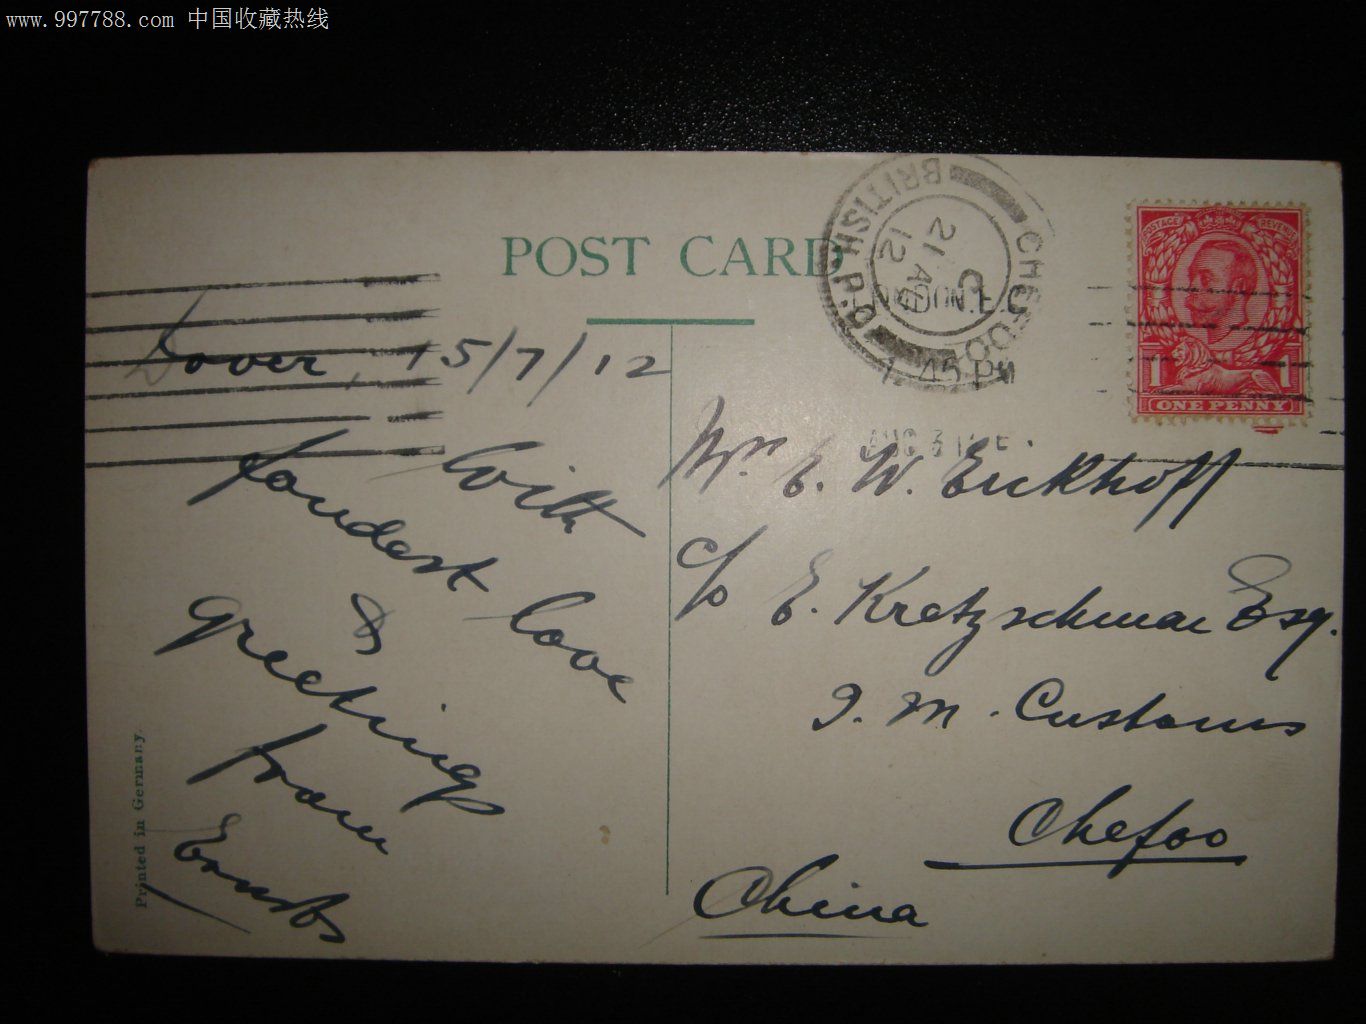 www.997788.com 中国收藏热线
POST CARD
BRITISH P.O.
CHEFOO
21 AU
12
LONDON.E.C
7.45PM
POSTAGE REVENUE
1 1
ONE PENNY
Dover, 15/7/12
With
fondest love
&
greetings
from
Printed in Germany.
E. W. Eickhoff
c/o E. Kretzschmar Esq.
I. M. Customs
Chefoo
China